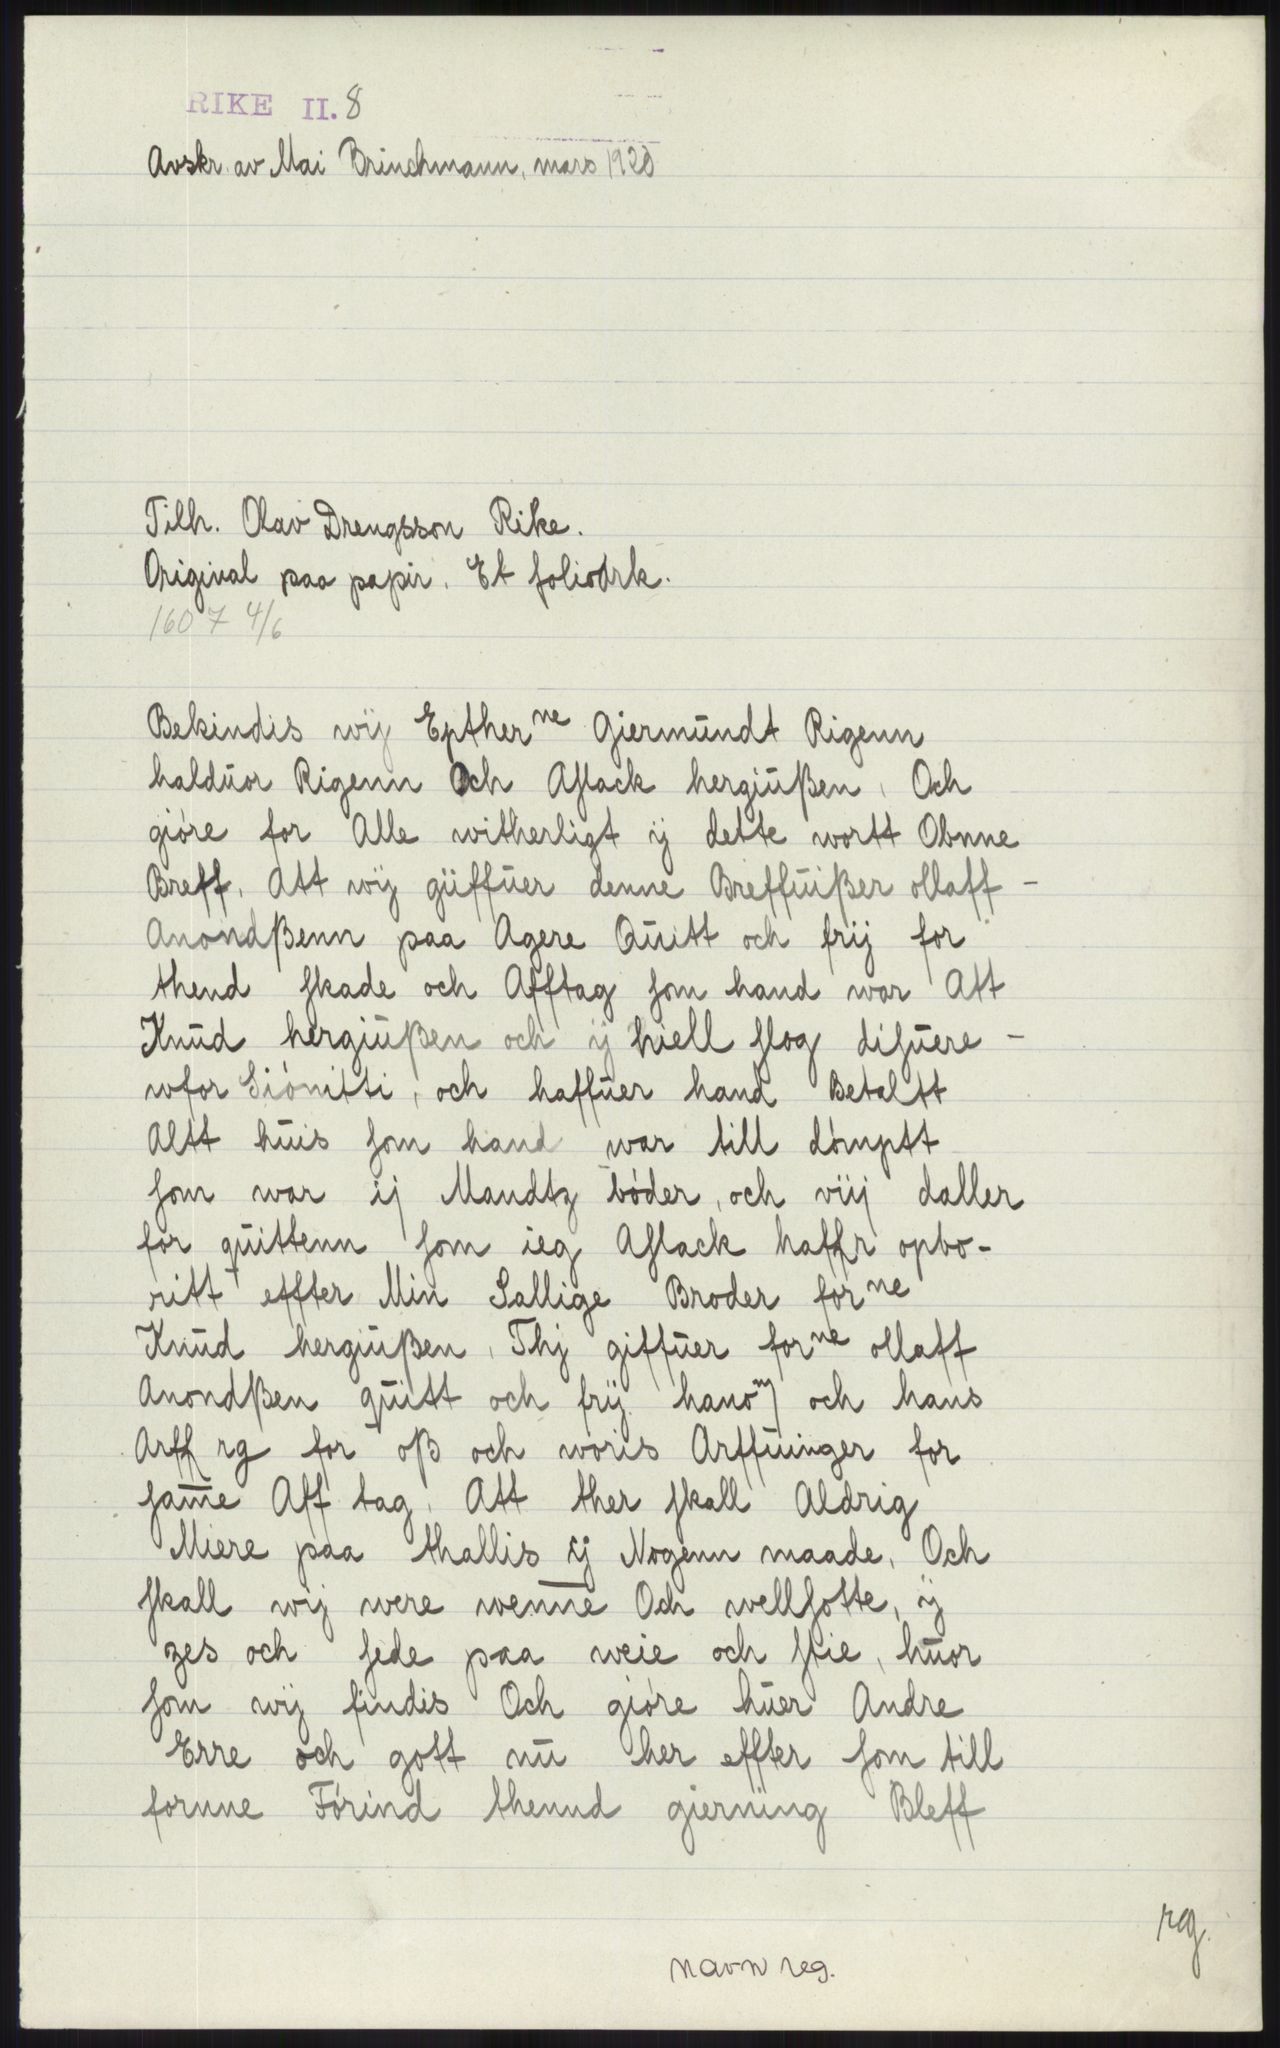 RIKE II. 8
Avskr. av Mai Brinchmann, mars 1920
Tilh. Olav Drengsson Rike.
Original paa papir. Et folioark.
1607 4/6
Bekindis wÿ Epther ne Giermundt Rigenn
halduor Rigenn Och Aslack hergiußen, Och
gióre for Alle witherligt ÿ dette wortt Obnne
Breff, Att wÿ güffuer denne Breffuißer ollaff -
Anondßenn paa Agere Quitt och frÿ for
thend skade och Afftag som hand war Att
Knud hergiußen och ÿ hiell slog disuere -
wfor Siónitti, och haffuer hand Betaltt
Altt huis som hand war till dómptt
som war ij Mandtz bóder, och viij daller
for quittenn som ieg Aslack haffr opbo-
ritt effter Min Sallige Broder for ne
Knud hergiußen, Thj giffuer for ne ollaff
Anondßen quitt och frÿ hanom och hans
Arff rg for oß och woris Arffuinger for
same Aff tag, Att ther skall Aldrig
Miere paa thallis ÿ Nogenn maade, Och
skall wÿ were wenne Och wellsotte, ÿ
zes och sede paa weie och stie, huor
som wÿ findis Och gióre huer Andre
Erre och gott nu her effter som till
fornne Fórind thennd gierning Bleff
rg.
navn reg.